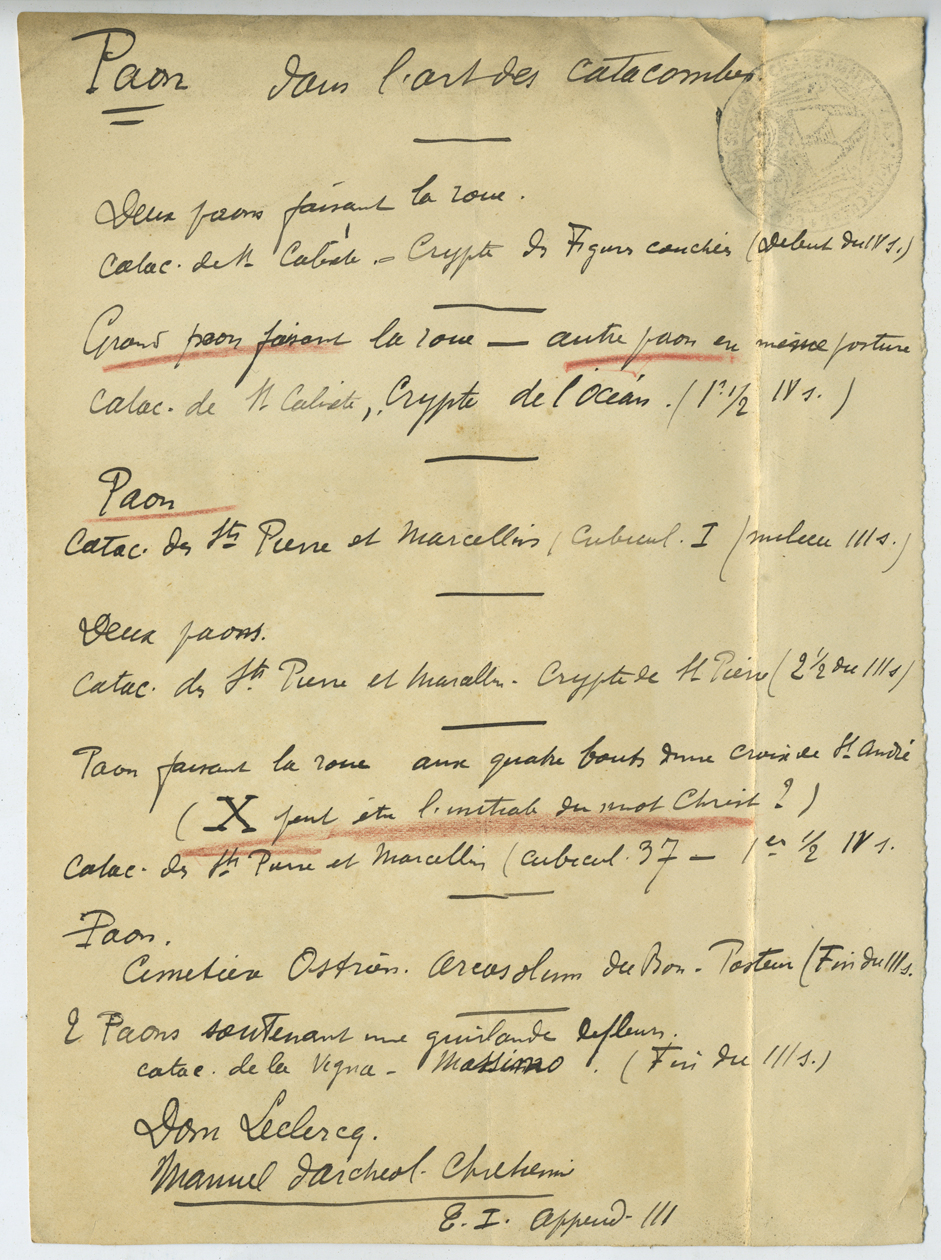 Paon dans l'art des catacombes
Deux paons faisant la roue.
Catac. de St Calixte. – Crypte des Figures couchées (Début du IV s.)
Grand paon faisant la roue — autre paon en même posture
Catac. de St Calixte, Crypte de l'Océan. (1re 1/2 IV s.)
Paon
Catac. des Sts Pierre et Marcellin (Cubicul. I (milieu III s.)
Deux paons.
Catac. des Sts Pierre et Marcellin – Crypte de St Pierre (2 1/2 du III s)
Paon faisant la roue aux quatre bouts d'une croix de St André
(X peut être l'initiale du mot Christ ?)
Catac. des Sts Pierre et Marcellin (cubicul. 37 — 1er 1/2 IV s.
Paon.
Cimetière Ostrien. Arcosolium du Bon-Pasteur (Fin du III s.
2 Paons soutenant une guirlande de fleurs.
catac. de la Vigna – Massimo. (Fin du III s.)
Dom Leclercq.
Manuel d'archéol. Chrétienne
T. I. Append. III